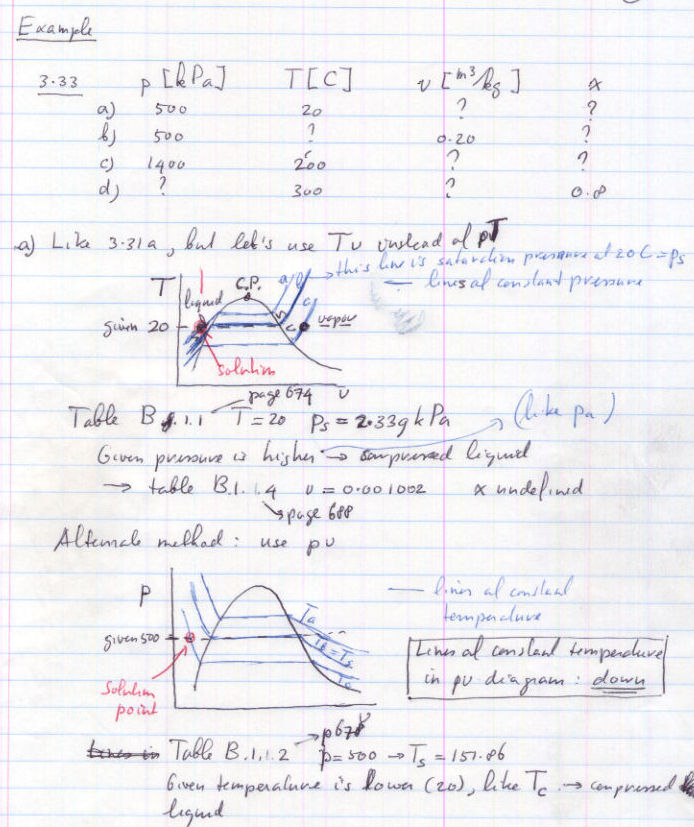 Example
3.33 p [kPa] T [C] v [m³/kg] x
a) 500 20 ? ?
b) 500 ? 0.20 ?
c) 1400 200 ? ?
d) ? 300 ? 0.8
a) Like 3.31a, but let's use Tv instead of pT
→ this line is saturation pressure at 20 C = ps
— lines of constant pressure
T C.P. a b c
liquid
given 20 vapor
solution
v
page 674
Table B.1.1 T = 20 ps = 2.339 kPa (like pa)
Given pressure is higher → compressed liquid
→ table B.1.4 v = 0.001002 x undefined
page 688
Alternate method: use pv
— lines of constant
temperature
p
Ta
given 500 Tb = Ts
Tc
Lines of constant temperature
in pv diagram: down
solution
point
p678
Table B.1.1.2 p = 500 → Ts = 151.86
Given temperature is lower (20), like Tc → compressed
liquid